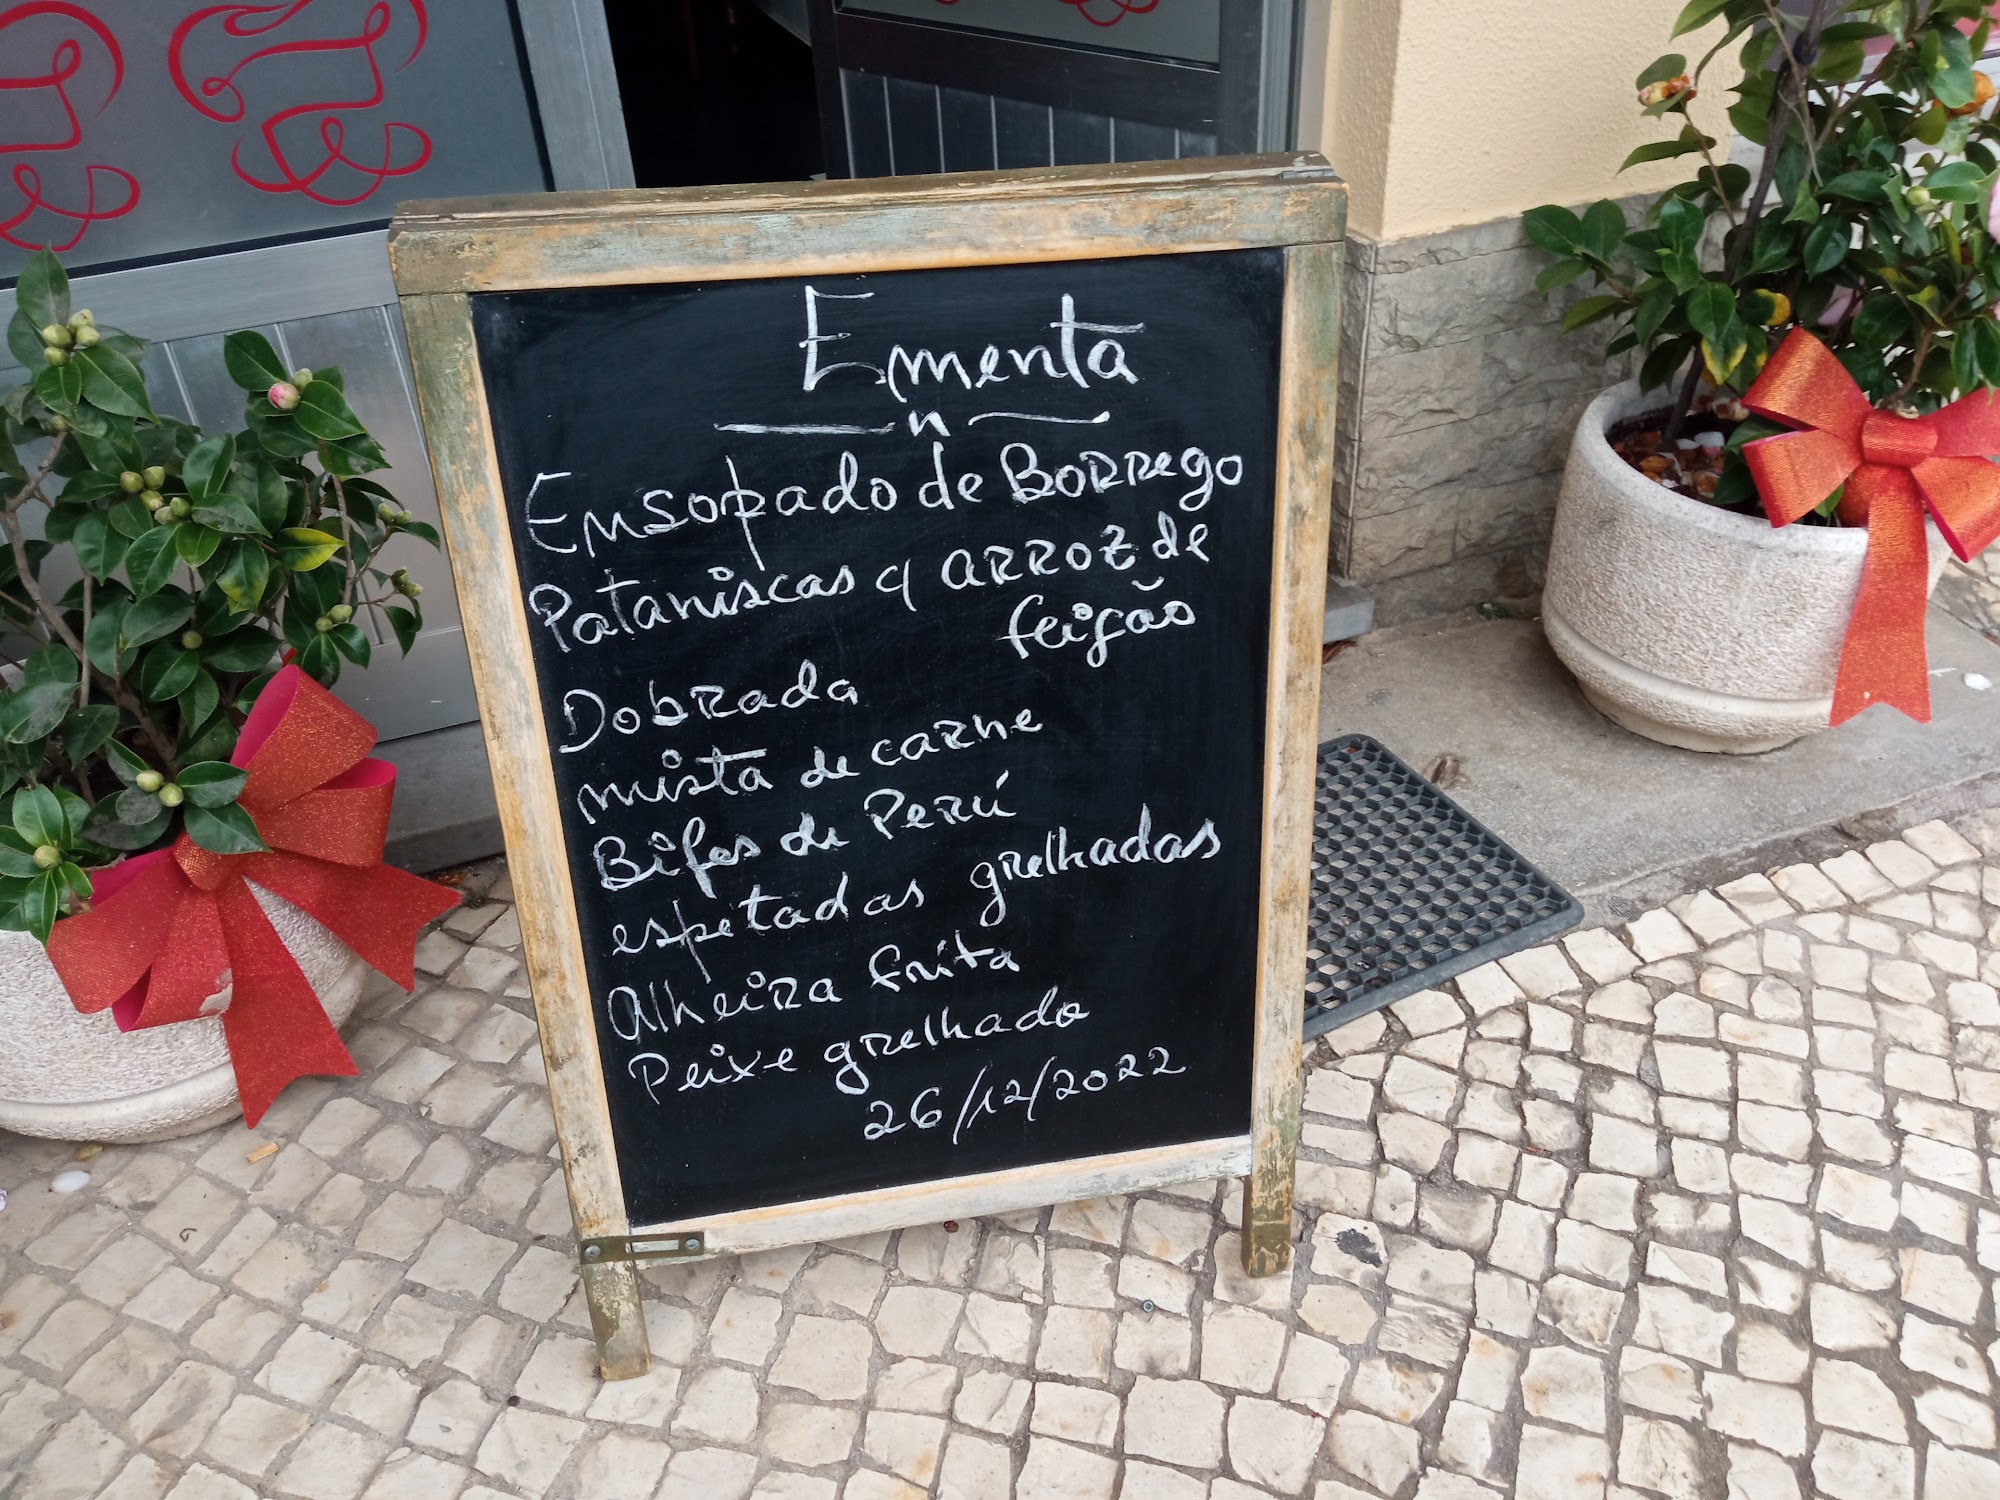 Ementa
n
Ensopado de Borrego
Pataniscas c/ arroz de
feijão
Dobrada
mista de carne
Bifes de Perú
espetadas grelhadas
Alheira frita
Peixe grelhado
26/12/2022